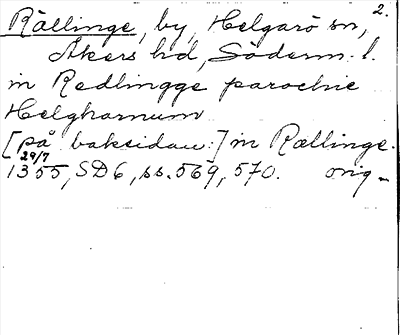 2.
Rällinge, by, Helgarö sn,
Åkers hd, Söderm. l.
in Redlingge parochie
Helgharnum
[på baksidan:] in Rællinge.
29/7
1355, SD6, ss. 569, 570. orig.